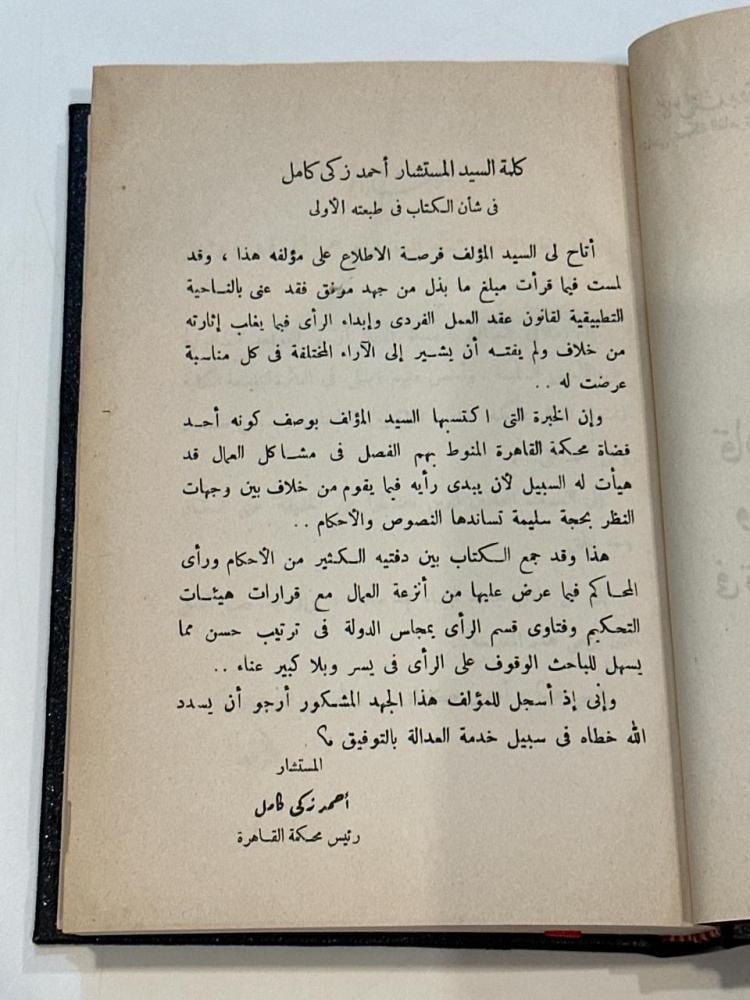 كلمة السيد المستشار أحمد زكى كامل
فى شأن الكتاب فى طبعته الأولى
أتاح لى السيد المؤلف فرصة الاطلاع على مؤلفه هذا ، وقد
لمست فيما قرأت مبلغ ما بذل من جهد موفق فقد عنى بالناحية
التطبيقية لقانون عقد العمل الفردى وإبداء الرأى فيما يغلب إثارته
من خلاف ولم يفته أن يشير إلى الآراء المختلفة فى كل مناسبة
عرضت له . .
وإن الخبرة التى اكتسبها السيد المؤلف بوصف كونه أحد
قضاة محكمة القاهرة المنوط بهم الفصل فى مشاكل العمال قد
هيأت له السبيل لأن يبدى رأيه فيما يقوم من خلاف بين وجهات
النظر بحجة سليمة تساندها النصوص والأحكام . .
هذا وقد جمع الكتاب بين دفتيه الكثير من الأحكام ورأى
المحاكم فيما عرض عليها من أنزعة العمال مع قرارات هيئات
التحكيم وفتاوى قسم الرأى بمجلس الدولة فى ترتيب حسن مما
يسهل للباحث الوقوف على الرأى فى يسر وبلا كبير عناء . .
وإنى إذ أسجل للمؤلف هذا الجهد المشكور أرجو أن يسدد
الله خطاه فى سبيل خدمة العدالة بالتوفيق
المستشار
أحمد زكى كامل
رئيس محكمة القاهرة